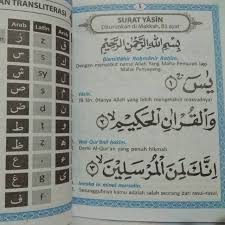 AN TRANSLITERASI
Arab Latin Arab
ز z
س s
ش sy
ص sh
ض
ط
ظ
1
SURAT YÂSÎN
Diturunkan di Makkah, 83 ayat
بِسْمِ اللّٰهِ الرَّحْمٰنِ الرَّحِيْمِ
Bismillâhir Rahmânir Rahîm.
Dengan menyebut nama Allah Yang Maha Pemurah lagi
Maha Penyayang.
يٰسۤ ۝١
Yâsîn.
Yâ Sîn. (Hanya Allah yang lebih mengetahui maksudnya)
وَالْقُرْاٰنِ الْحَكِيْمِ ۝٢
Wal Qur'ânil hakîm.
Demi Al-Qur'an yang penuh hikmah
اِنَّكَ لَمِنَ الْمُرْسَلِيْنَ ۝٣
Innaka la minal mursalîn.
Sesungguhnya kamu adalah salah seorang dari rasul-rasul,